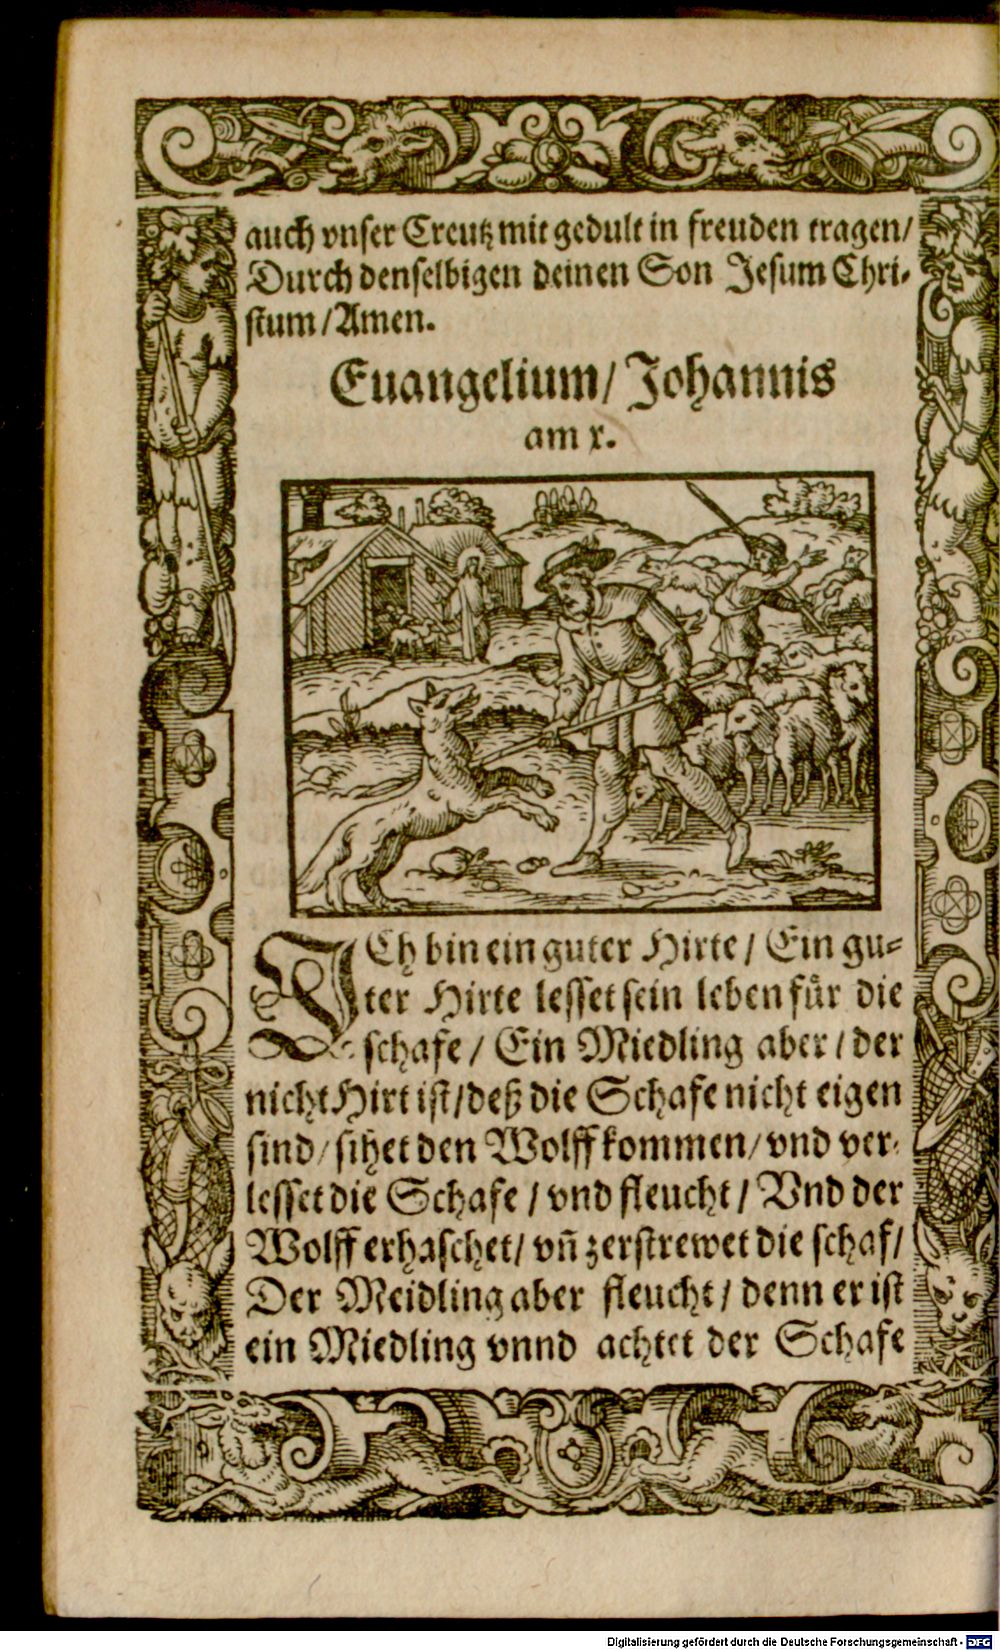 auch vnser Creutz mit gedult in freuden tragen/
Durch denselbigen deinen Son Jesum Chri-
stum/Amen.
Euangelium/ Johannis
am x.
ICh bin ein guter Hirte/ Ein gu-
ter Hirte lesset sein leben für die
schafe/ Ein Miedling aber/ der
nicht Hirt ist/deß die Schafe nicht eigen
sind/sihet den Wolff kommen/vnd ver-
lesset die Schafe/ vnd fleucht/ Vnd der
Wolff erhaschet/ vñ zerstrewet die schaf/
Der Meidling aber fleucht/ denn er ist
ein Miedling vnnd achtet der Schafe
Digitalisierung gefördert durch die Deutsche Forschungsgemeinschaft - DFG